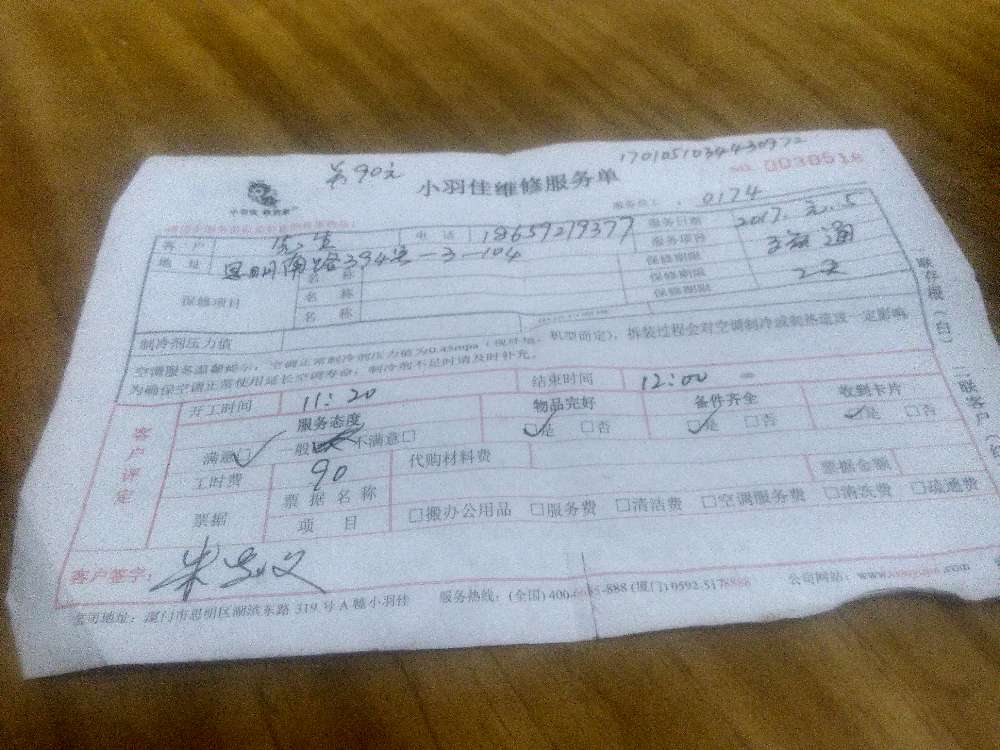 共90元 1701051034430972
小羽佳维修服务单 NO. 0030516
小羽佳 0174
客户 先生 电话 18659219377 服务日期 2017.元.5
地址 思明南路394号-3-104 服务项目
保修项目 名称 保修期限
名称 保修期限
名称 保修期限
制冷剂压力值
空调服务温馨提示:空调正常制冷剂压力值为0.45mpa 机型而定),拆装过程会对空调制冷或制热造成一定影响
为确保空调正常使用延长空调寿命,制冷剂不足时请及时补充。
客户评定 开工时间 11:20 结束时间 12:00
服务态度 物品完好 备件齐全 收到卡片
满意□ 一般□ 不满意□ □是 □否 □是 □否 □是 □否
工时费 90 代购材料费 票据金额
票据 票据名称
项目 □搬办公用品 □服务费 □清洁费 □空调服务费 □清洗费 □疏通费
客户签字:
公司地址:厦门市思明区湖滨东路319号A幢小羽佳 服务热线:(全国)400- -888(厦门)0592-5178888 公司网站:www. .com